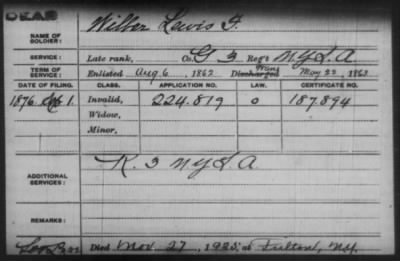 DEAD
NAME OF SOLDIER: Wilber Lewis F.
SERVICE: Late rank, Co. G 3 Reg't N.Y.L.A
TERM OF SERVICE: Enlisted Aug 6, 1862 Discharged Trans May 22, 1863
DATE OF FILING. CLASS. APPLICATION NO. LAW. CERTIFICATE NO.
1876. 1. Invalid, 224.819 0 187.894
Widow,
Minor,
ADDITIONAL SERVICES: K. 3 N.Y.L.A.
REMARKS:
Died Nov. 27, 1925 at Fulton, N.Y.